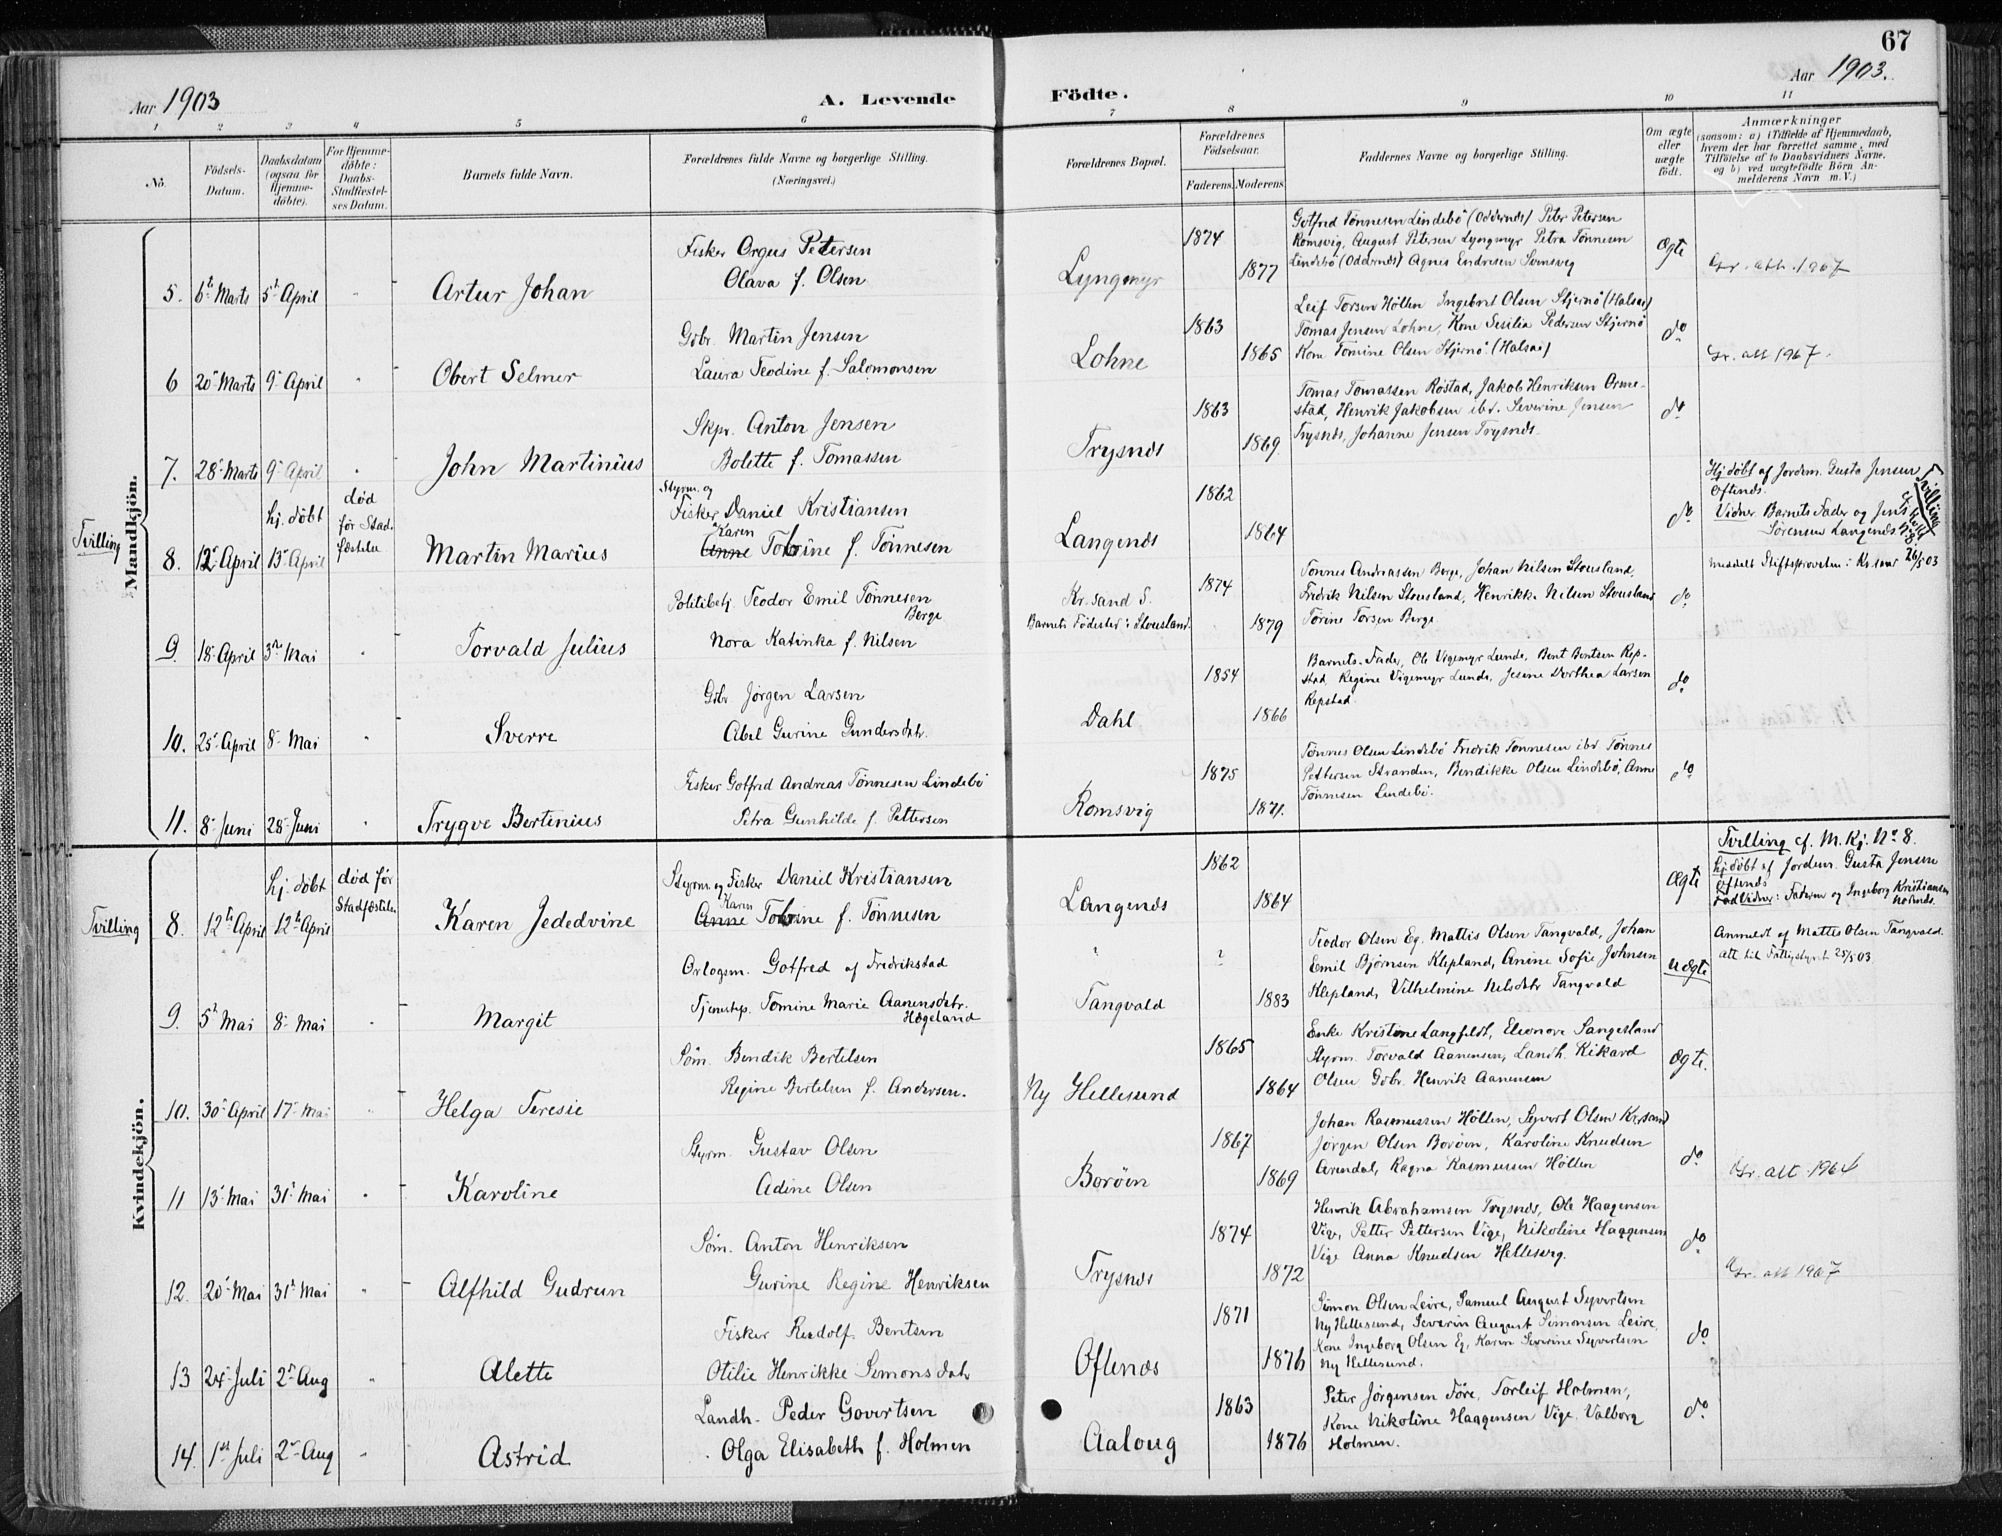 67
Aar 1903
A. Levende Födte.
Aar 1903.
1 2 3 4 5 6 7 8 9 10 11
No.
Födsels-
Datum.
Daabsdatum
(ogsaa for
Hjemme-
döbte).
For Hjemme-
döbte:
Daabs-
Stadfæstel-
ses Datum.
Barnets fulde Navn.
Forældrenes fulde Navne og borgerlige Stilling.
(Næringsvei.)
Forældrenes Bopæl.
Forældrenes
Födselsaar.
Faderens. Moderens.
Faddernes Navne og borgerlige Stilling.
Om ægte
eller
uægte
födt.
Anmærkninger
(saasom: a) i Tilfælde af Hjemmedaab,
hvem der har forrettet samme, med
Tilföielse af to Daabsvidners Navne.
og b) ved uægtefödte Börn An-
melderens Navn m.V.)
Mandkjön.
5. 6te Marts 5te April
Artur Johan
Fisker Orgus Petersen
Olava f. Olsen
Lyngmyr
1874
1877
Gotfred Tönnesen Lindebö (Oddernæs) Peter Petersen
Romsvig, August Petersen Lyngmyr Petra Tönnesen
Lindebö (Oddernæs) Agnes Endresen
Ægte
att. 1907
6 20 Marts 9 April
Obert Selmer
Gbr. Martin Jensen
Laura Teodine f. Salomonsen
Lohne
1863
1865
Leif Torsen Höllen Ingebret Olsen Stjernö (Halsaa)
Tomas Jensen Lohne, Kone Sesilia Pedersen Stjernö
Kone Tomine Olsen Stjernö (Halsaa)
do
att 1967.
7. 28 Marts 9 April
John Martinius
Skpr. Anton Jensen
Bolette f. Tomassen
Trysnæs
1863
1869.
Tomas Tomassen Röstad, Jakob Henriksen Orme-
stad, Henrik Jakobsen ibd. Severine Jensen
Trysnæs, Johanne Jensen Trysnæs.
do
Tvilling
8. 12 April 13 April
hj. döbt
död
før Stad-
fæstelse
Martin Marius
Styrm. og
Fisker Daniel Kristiansen
Karen
Anne Tobine f. Tönnesen
Langenæs
1862
1864
do
Hj. döbt af Jordem. Gusta Jensen
Oftenæs.
Vidner Barnets Fader og Jens
Sörensen Langenæs.
Tvilling
26/5 03
9 18 April 3die Mai
Torvald Julius
Politibetj Teodor Emil Tönnesen
Berge
Nora Katinka f. Nilsen
Kr.sand S.
Barnets Födested: Stousland
1874
1879
Tönnes Andreassen Berge, Johan Nilsen Stousland,
Fredrik Nilsen Stousland, Henrikke Nilsen Stousland
Torine Torsen Berge
do
10. 25 April 8 Mai
Sverre
Gbr Jörgen Larsen
Abel Gurine Gundersdtr.
Dahl
1854
1866
Barnets Fader, Ole Vigemyr Lunde, Bent Bentsen Rep-
stad, Regine Vigemyr Lunde, Jesine Dorthea Larsen
Repstad.
do
11. 8 Juni 28 Juni
Trygve Bertinius
Fisker Gotfred Andreas Tönnesen Lindebö
Petra Gunhilde f. Pettersen
Romsvig
1875
1871.
Tönnes Olsen Lindebö Fredrik Tönnesen ibd Tönnes
Pettersen Stranden, Bendikke Olsen Lindebö, Anne
Tönnesen Lindebö.
do
Kvindekjön.
Tvilling
8. 12te April 12te April
hj. döbt
död før
Stadfæstelse
Karen Jededvine
Styrm. og Fisker Daniel Kristiansen
Karen
Anne Tobine f. Tönnesen
Langenæs
1862
1864
Ægte
Tvilling cf. M.Kj. No 8.
hj. döbt af Jordem. Gusta Jensen
Oftenæs
Vidner: Faderen og Ingeborg Kristiansen
9. 5te Mai 8 Mai
Margit
Orlogsm. Gotfred af Fredrikstad
Tjenestep. Tomine Marie Aanensdtr.
Hægeland
Tangvald
?
1883
Teodor Olsen Eg. Mattis Olsen Tangvald, Johan
Emil Björnsen Klepland, Anine Sofie Johnsen
Klepland, Vilhelmine Nelsdtr Tangvald
Uægte
Anmeldt af Mattis Olsen Tangvald.
att til Fattigstyret 25/5 03.
10. 30 April 17 Mai
Helga Teresie
Söm. Bendik Bertelsen
Regine Bertelsen f. Andersen.
Ny Hellesund
1865
1864
Enke Kristine Langfeldt, Eleonore Sangesland
Styrm. Torvald Aanensen, Landh. Rikard
Olsen Gbr. Henrik Aanensen
Ægte.
11 13 Mai 31 Mai
Karoline
Styrm. Gustav Olsen
Adine Olsen
Boröen
1867
1869
Johan Rasmussen Höllen, Syvert Olsen Kr.sand
Jörgen Olsen Boröen, Karoline Knudsen
Arendal, Ragna Rasmussen Höllen
do
att 1964
12. 20 Mai 31 Mai
Alfhild Gudrun
Söm. Anton Henriksen
Gurine Regine Henriksen
Trysnæs
1874
1872
Henrik Abrahamsen Trysnæs, Ole Haagensen
Vige, Petter Pettersen Vige, Nikoline Haagensen
Vige Anna Knudsen Hellesvig.
do
att 1907
13 24 Juli 2 Aug
Alette
Fisker Rudolf Bentsen
Otilie Henrikke Simonsdatr
Oftenæs
1871
1876
Simon Olsen Leire, Samuel August Syvertsen
Ny Hellesund, Severin August Simonsen Leire,
Kone Ingeborg Olsen Eg, Karen Severine Syvertsen
Ny Hellesund.
do
14. 1ste Juli 2 Aug
Astrid
Landh. Peder Govertsen
Olga Elisabeth f. Holmen
Aaloug
1863
1876
Peter Jörgensen Före, Torleif Holmen,
Kone Nikoline Haagensen Vige, Valborg
Holmen.
do